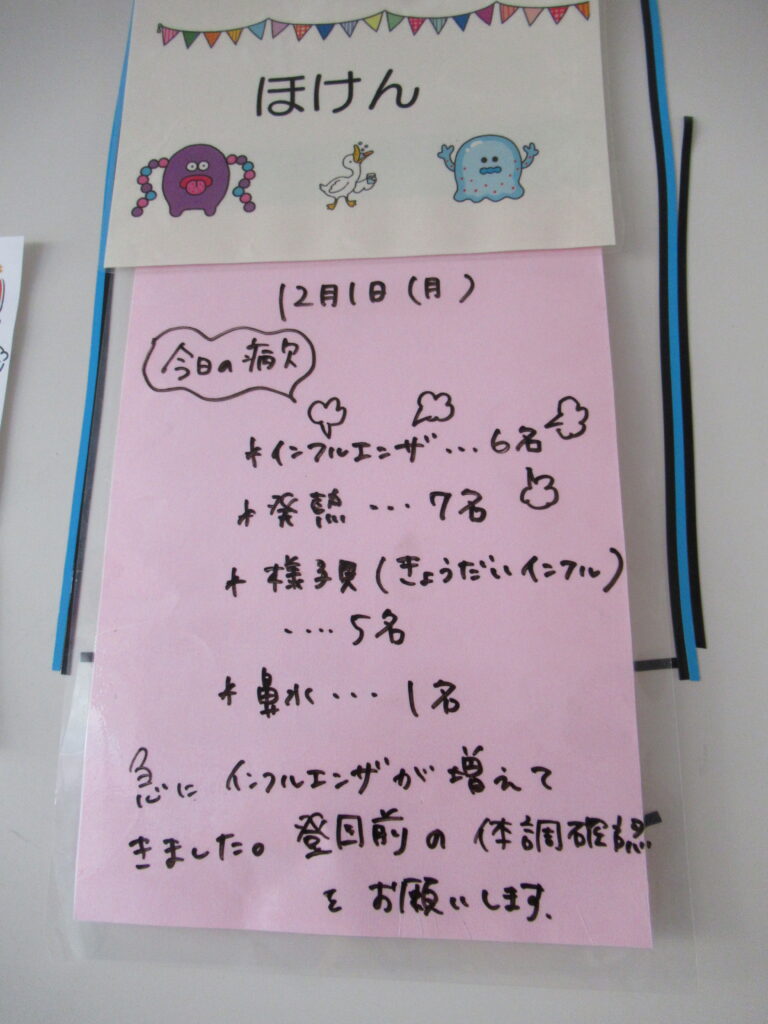 ほけん
12月1日(月)
今日の病欠
*インフルエンザ...6名
*発熱...7名
*様子見(きょうだいインフル)
....5名
*鼻水...1名
急にインフルエンザが増えて
きました。登园前の体調確認
をお願いします。